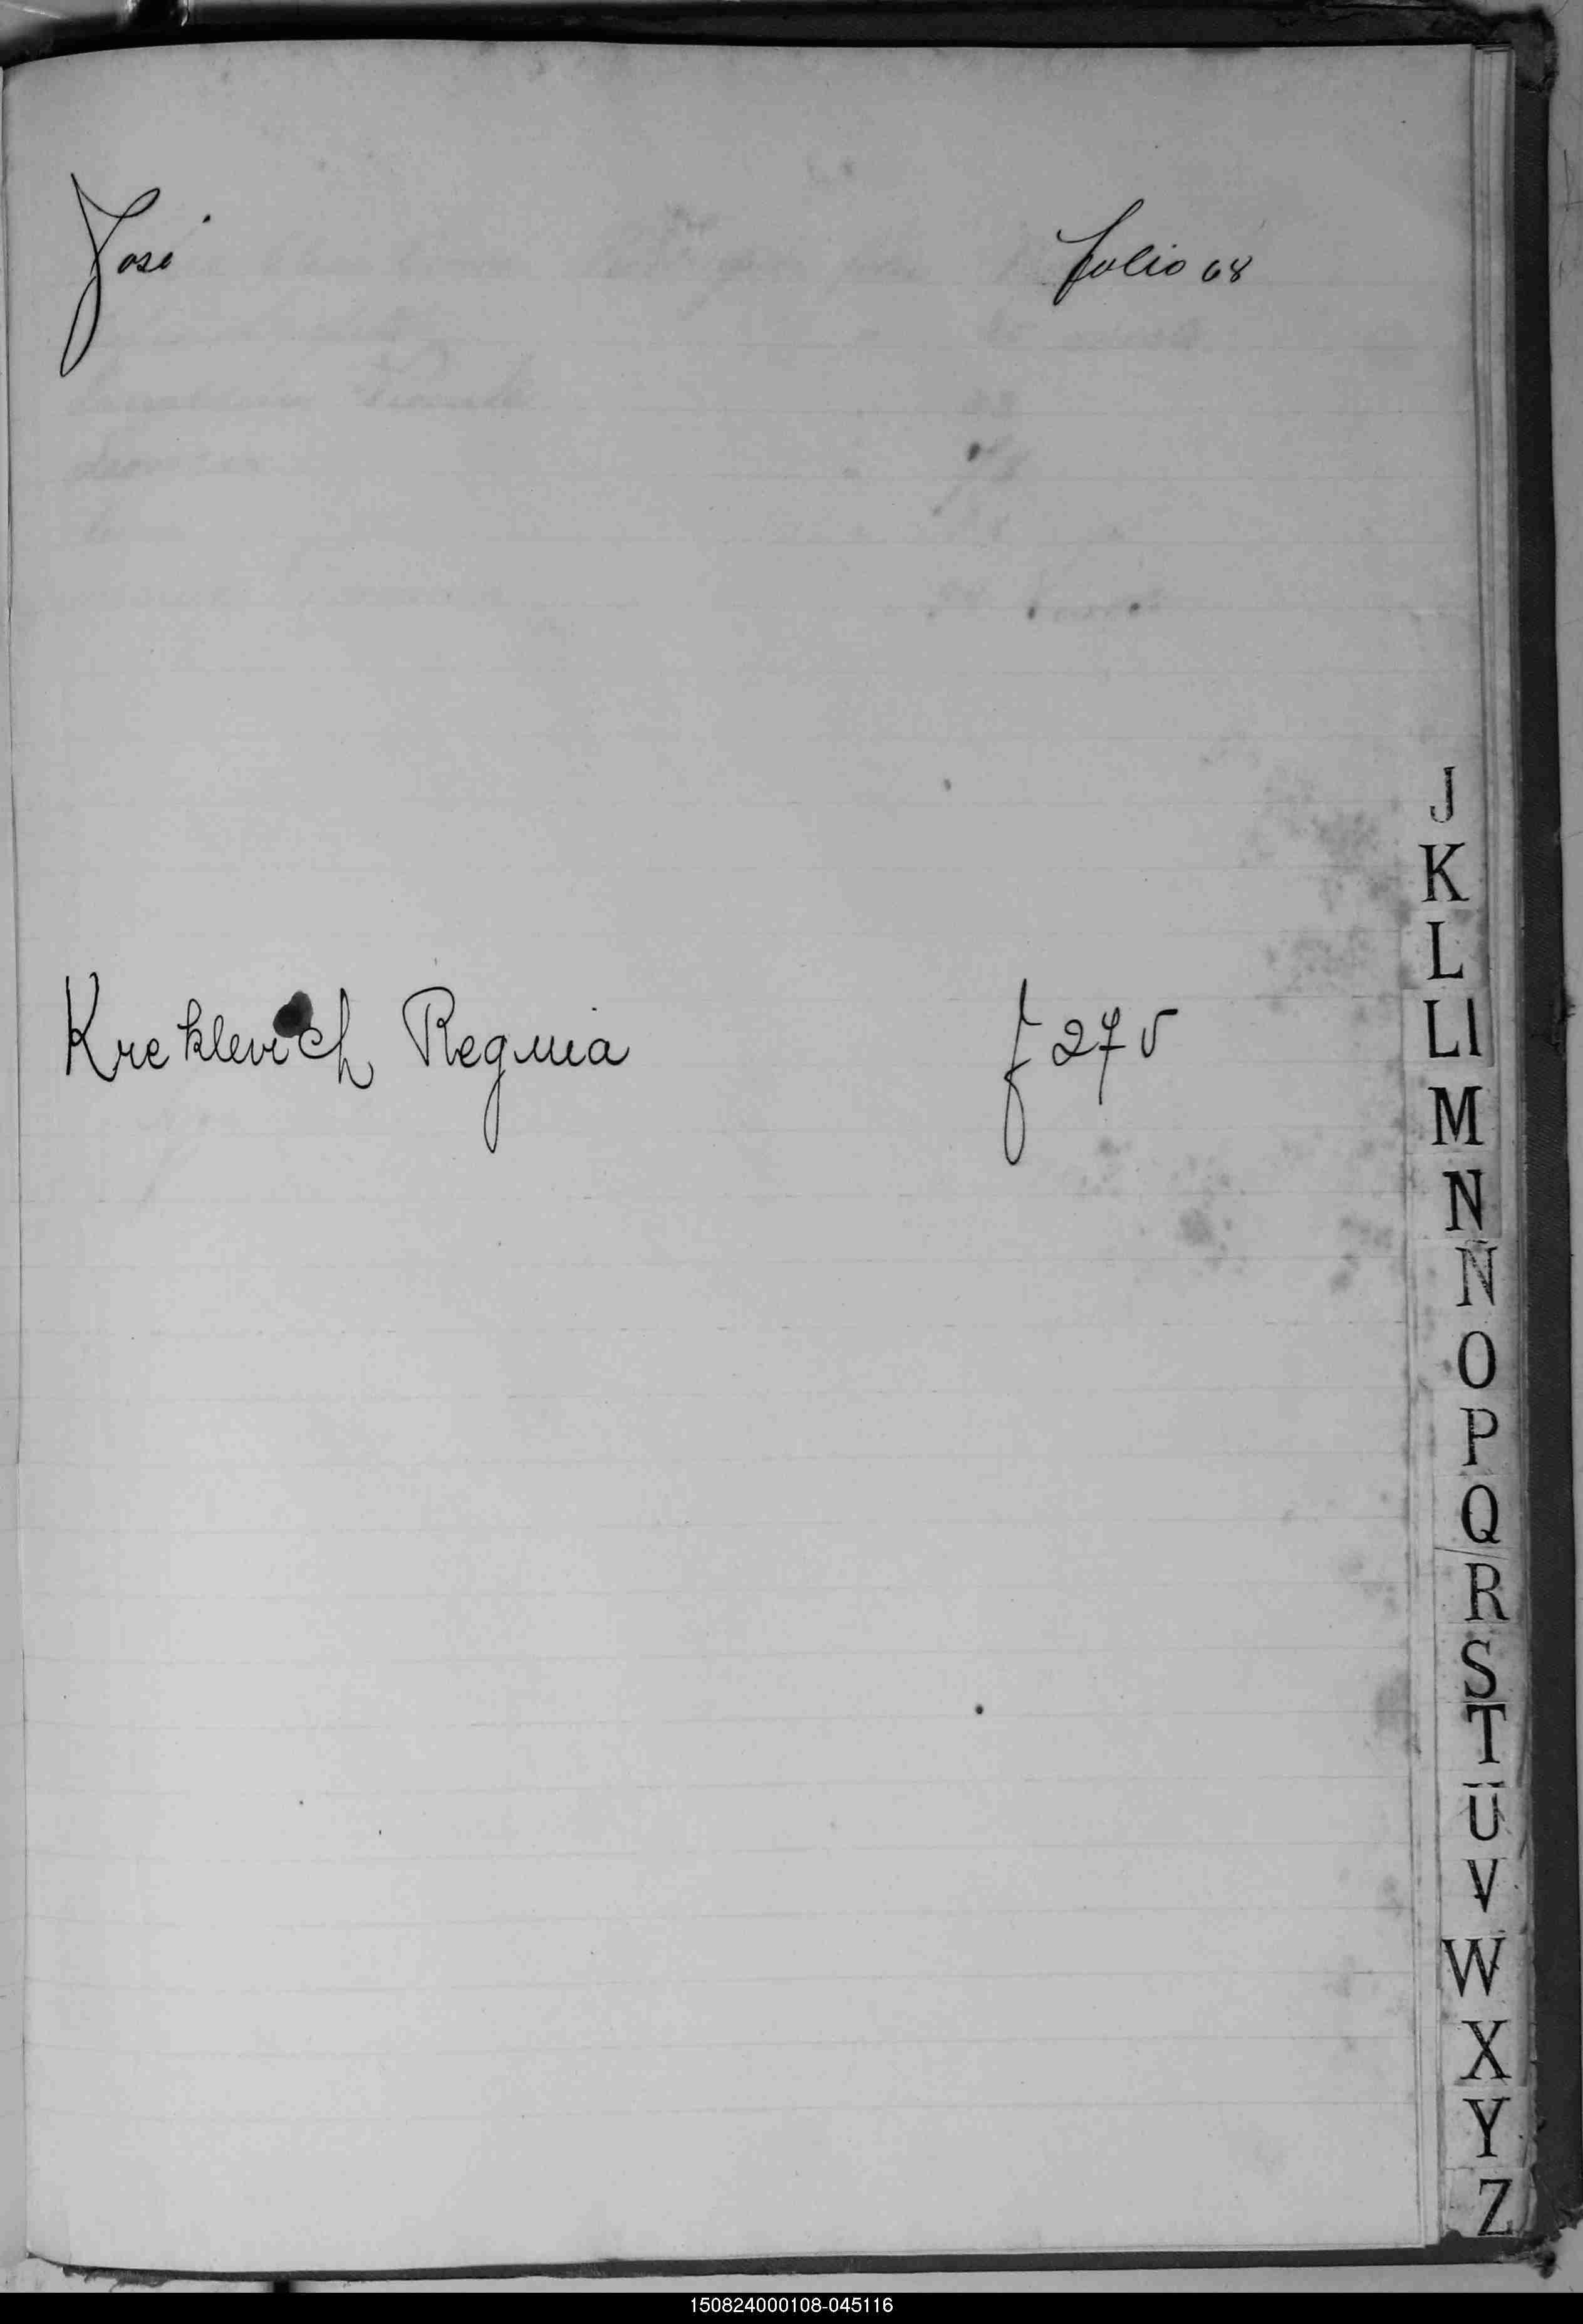 José folio 68
Kreklevich Regina f 27 v
J
K
L
Ll
M
N
Ñ
O
P
Q
R
S
T
U
V
W
X
Y
Z
150824000108-045116